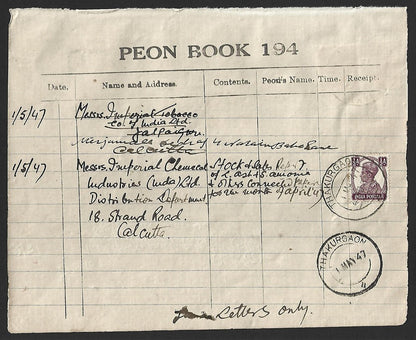 PEON BOOK 194
Date. Name and Address. Contents. Peon's Name. Time. Receipt.
1/5/47 Messrs. Imperial Tobacco
Co. of India Ltd.
Jalpaiguri.
Calcutta
1/5/47 Messrs. Imperial Chemical
Industries (India) Ltd
Distribution Department
18. Strand Road.
Calcutta
Stock &
& other connected
for the month of April 47
THAKURGAON
INDIA POSTAGE
THAKURGAON
1 MAY 47
Letters only.